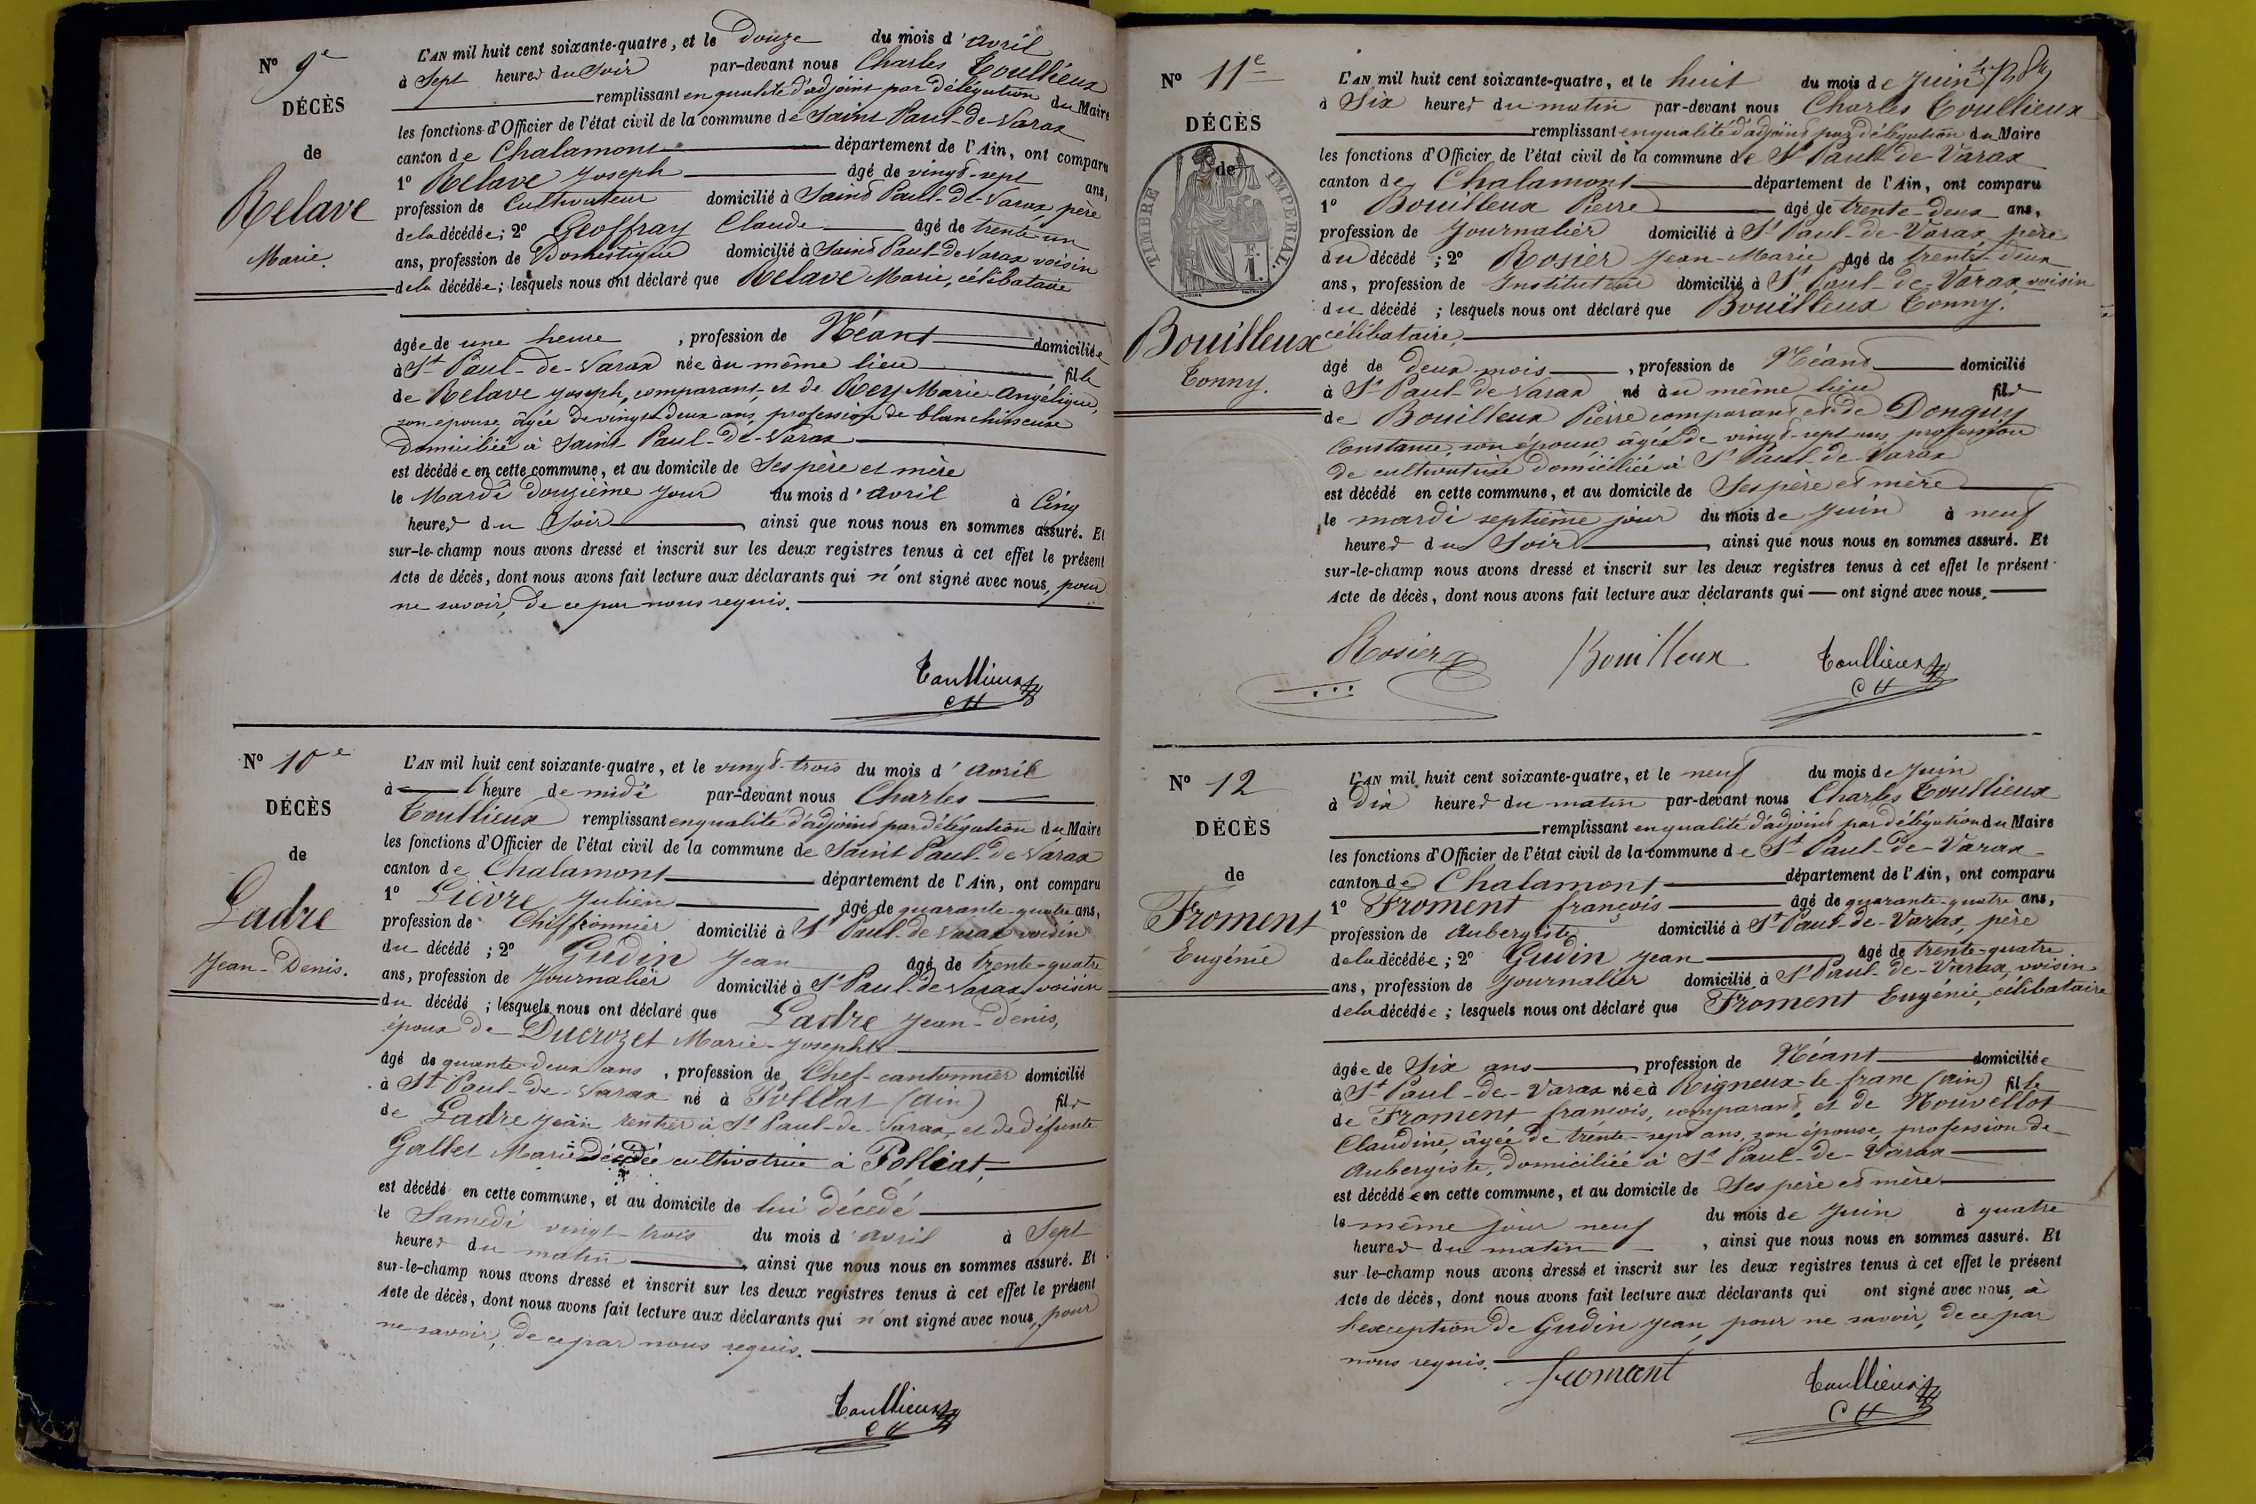 Nº 9e
DÉCÈS
de
Relave
Marie.
L'AN mil huit cent soixante-quatre, et le douze du mois d'avril
à Sept heures du Soir par-devant nous Charles Toullieux
remplissant en qualité d'adjoint par délégation du Maire
les fonctions d'Officier de l'état civil de la commune de Saint Paul-de-Varax
canton de Chalamont département de l'Ain, ont comparu
1º Relave Joseph âgé de vingt-sept ans,
profession de Cultivateur domicilié à Saint Paul-de-Varax, père
de la décédée; 2º Geoffray Claude âgé de trente-un
ans, profession de Domestique domicilié à Saint Paul-de-Varax voisin
de la décédée; lesquels nous ont déclaré que Relave Marie, célibataire
âgée de une heure, profession de Néant domiciliée
à St Paul-de-Varax née au même lieu fille
de Relave Joseph, comparant, et de Rey Marie Angélique,
son épouse, âgée de vingt-deux ans, profession de blanchisseuse
Domiciliée à Saint Paul-de-Varax
est décédée en cette commune, et au domicile de Ses père et mère
le Mardi douzième jour du mois d'avril à Cinq
heures du Soir, ainsi que nous nous en sommes assuré. Et
sur-le-champ nous avons dressé et inscrit sur les deux registres tenus à cet effet le présent
Acte de décès, dont nous avons fait lecture aux déclarants qui n'ont signé avec nous, pour
ne savoir, de ce par nous requis.
Toullieux
CH
Nº 10e
DÉCÈS
de
Ladre
Jean-Denis.
L'AN mil huit cent soixante-quatre, et le vingt-trois du mois d'avril
à l'heure de midi par-devant nous Charles
Toullieux remplissant en qualité d'adjoint par délégation du Maire
les fonctions d'Officier de l'état civil de la commune de Saint Paul-de-Varax
canton de Chalamont département de l'Ain, ont comparu
1º Lièvre Julien âgé de quarante-quatre ans,
profession de Chiffonnier domicilié à St Paul-de-Varax voisin
du décédé; 2º Gudin Jean âgé de trente-quatre
ans, profession de Journalier domicilié à St Paul-de-Varax, voisin
du décédé; lesquels nous ont déclaré que Ladre Jean-Denis,
époux de Ducrozet Marie-Josephte
âgé de quante-deux ans, profession de Chef-cantonnier domicilié
à St Paul-de-Varax né à Polliat (Ain) fils
de Ladre Jean rentier à St Paul-de-Varax, et de défunte
Gallet Marie décédée cultivatrice à Polliat,
est décédé en cette commune, et au domicile de lui décédé
le Samedi vingt-trois du mois d'avril à Sept
heures du matin, ainsi que nous nous en sommes assuré. Et
sur-le-champ nous avons dressé et inscrit sur les deux registres tenus à cet effet le présent
Acte de décès, dont nous avons fait lecture aux déclarants qui n'ont signé avec nous, pour
ne savoir, de ce par nous requis.
Toullieux
CH
Nº 11e
DÉCÈS
de
TIMBRE IMPÉRIAL.
1 F.
Bouilleux
Tonny.
L'AN mil huit cent soixante-quatre, et le huit du mois de Juin
à Six heures du matin par-devant nous Charles Toullieux
remplissant en qualité d'adjoint par délégation du Maire
les fonctions d'Officier de l'état civil de la commune de St Paul-de-Varax
canton de Chalamont département de l'Ain, ont comparu
1º Bouilleux Pierre âgé de trente-deux ans,
profession de Journalier domicilié à St Paul-de-Varax, père
du décédé; 2º Rosier Jean-Marie âgé de trente-deux
ans, profession de Instituteur domicilié à St Paul-de-Varax, voisin
du décédé; lesquels nous ont déclaré que Bouilleux Tonny.
célibataire,
âgé de deux mois, profession de Néant domicilié
à St Paul-de-Varax né au même lieu fils
de Bouilleux Pierre comparant et de Donguy
Constance, son épouse âgée de vingt-sept ans profession
de cultivatrice domiciliée à St Paul-de-Varax
est décédé en cette commune, et au domicile de Ses père et mère
le mardi septième jour du mois de Juin à neuf
heures du Soir, ainsi que nous nous en sommes assuré. Et
sur-le-champ nous avons dressé et inscrit sur les deux registres tenus à cet effet le présent
Acte de décès, dont nous avons fait lecture aux déclarants qui ont signé avec nous,
Rosier Bouilleux Toullieux
CH
Nº 12
DÉCÈS
de
Froment
Eugénie
L'AN mil huit cent soixante-quatre, et le neuf du mois de Juin
à dix heures du matin par-devant nous Charles Toullieux
remplissant en qualité d'adjoint par délégation du Maire
les fonctions d'Officier de l'état civil de la commune de St Paul-de-Varax
canton de Chalamont département de l'Ain, ont comparu
1º Froment françois âgé de quarante-quatre ans,
profession de Aubergiste domicilié à St Paul-de-Varax, père
de la décédée; 2º Gudin Jean âgé de trente-quatre
ans, profession de Journalier domicilié à St Paul-de-Varax, voisin
de la décédée; lesquels nous ont déclaré que Froment Eugénie, célibataire
âgée de Six ans, profession de Néant domiciliée
à St Paul-de-Varax née à Rigneux-le-franc (Ain) fille
de Froment françois, comparant, et de Nouvellot
Claudine, âgée de trente-sept ans, son épouse, profession de
Aubergiste, domiciliée à St Paul-de-Varax
est décédée en cette commune, et au domicile de Ses père et mère
le même jour neuf du mois de Juin à quatre
heures du matin, ainsi que nous nous en sommes assuré. Et
sur-le-champ nous avons dressé et inscrit sur les deux registres tenus à cet effet le présent
Acte de décès, dont nous avons fait lecture aux déclarants qui ont signé avec nous, à
l'exception de Gudin Jean, pour ne savoir, de ce par
nous requis.
fromant Toullieux
CH